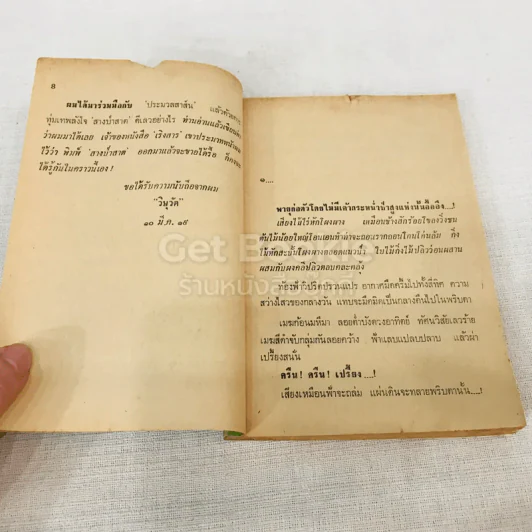 8
ผมได้มาร่วมมือกับ 'ประมวลสาส์น' แล้วด้วยการ
ทุ่มเทพลังใจ 'สางป่าสาด' ดีเลวอย่างไร ท่านอ่านแล้วเขียน
ว่าผมมาได้เลย เจ้าของหนังสือ 'เริงสาร' เขาประมาท
ไว้ว่า พิมพ์ 'สางป่าสาด' ออกมาแล้วจะขายได้รึ ก็คง
ได้รู้กันในคราวนี้เอง !
ขอได้รับความนับถือจากผม
'วินุวัต'
๑๐ มี.ค. ๑๙
๑....
พายุก่อตัวโดยไม่มีเค้ากระหน่ำป่าสูงแห่งนั้นอื้ออึง....!
เสียงไม้ไร่หักโผงผาง เหมือนช้างสักร้อยโขลงวิ่งชน
ต้นไม้น้อยใหญ่โอนเอนทำท่าจะถอนรากถอนโคนโค่นล้ม กิ่ง
ไม้หักสะบั้นโผงผางตลอดแนวป่า ใบไม้กิ่งไม้ปลิวว่อนผสาน
ผสมกับผงคลีปลิวตลบคละคลุ้ง
ท้องฟ้าวิปริตปรวนแปร อากาศมืดครึ้มไปทั้งสี่ทิศ ความ
สว่างไสวของกลางวัน แทบจะมืดมิดเป็นกลางคืนไปในพริบตา
เมฆก้อนมหึมา ลอยต่ำบังดวงอาทิตย์ ทัศนวิสัยเลวร้าย
เมฆสีดำจับกลุ่มกันลอยคว้าง ฟ้าแลบแปลบปลาบ แล้วผ่า
เปรี้ยงสนั่น
ครืน ! ครืน ! เปรี้ยง ....!
เสียงเหมือนฟ้าจะถล่ม แผ่นดินจะทลายพริบตานั้น....!
Get Bookie
ร้านหนังสือ